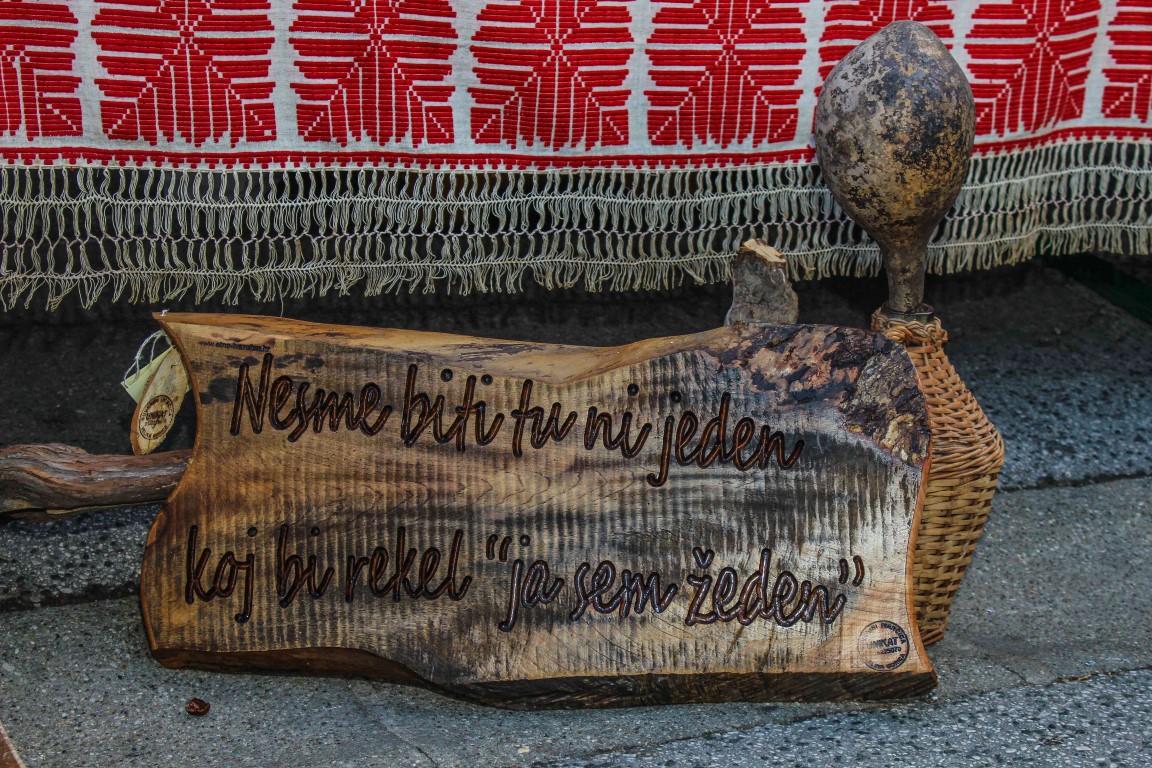 Nesme biti tu ni jeden
koj bi rekel “ja sem žeden”
UNIKAT